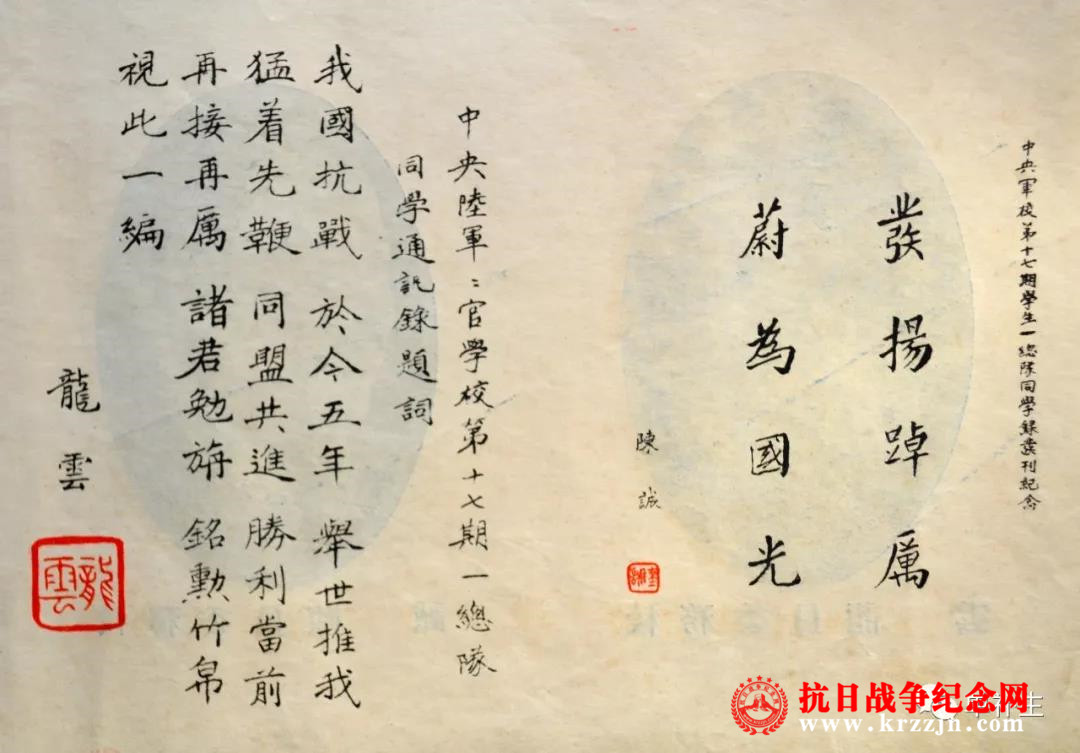 中央軍校第十七期學生一總隊同學錄叢刊紀念
發揚踔厲
蔚為國光
陳誠
中央陸軍〻官學校第十七期一總隊
同學通訊錄題詞
我國抗戰 於今五年 舉世推我
猛着先鞭 同盟共進 勝利當前
再接再厲 諸君勉旃 銘勳竹帛
視此一編
龍雲
龍雲
抗日战争纪念网
www.krzzjn.com